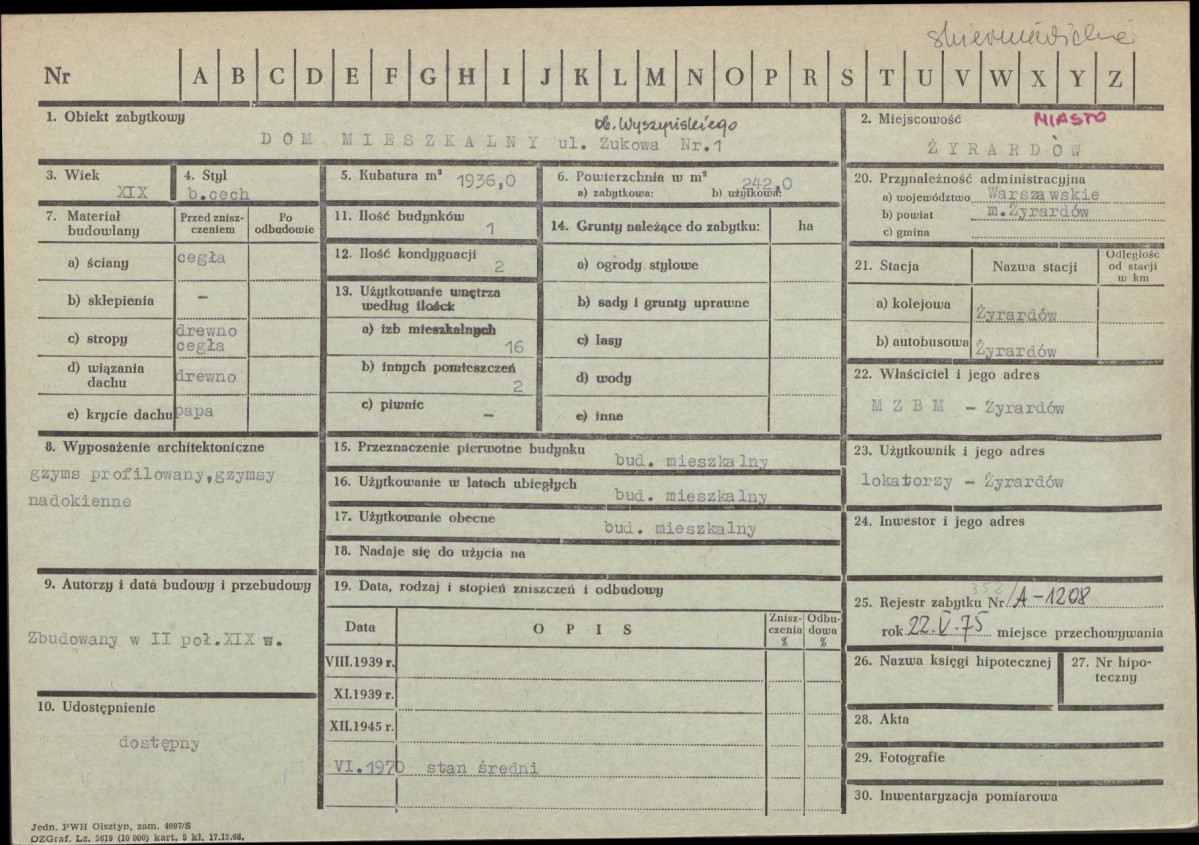 skierniewickie
Nr A B C D E F G H I J K L M N O P R S T U V W X Y Z
1. Obiekt zabytkowy
ob. Wyszyńskiego
DOM MIESZKALNY ul. Żukowa Nr.1
2. Miejscowość MIASTO
ŻYRARDÓW
3. Wiek
XIX
4. Styl
b.cech
5. Kubatura m³ 1936,0
6. Powierzchnia w m² 242,0
a) zabytkowa: b) użytkowa:
7. Materiał budowlany
Przed zniszczeniem
Po odbudowie
a) ściany cegła
b) sklepienia –
c) stropy drewno cegła
d) wiązania dachu drewno
e) krycie dachu papa
8. Wyposażenie architektoniczne
gzyms profilowany,gzymsy
nadokienne
9. Autorzy i data budowy i przebudowy
Zbudowany w II poł.XIX w.
10. Udostępnienie
dostępny
11. Ilość budynków
1
12. Ilość kondygnacji
2
13. Użytkowanie wnętrza
według ilości:
a) izb mieszkalnych
16
b) innych pomieszczeń
2
c) piwnic
–
14. Grunty należące do zabytku: ha
a) ogrody stylowe
b) sady i grunty uprawne
c) lasy
d) wody
e) inne
15. Przeznaczenie pierwotne budynku
bud. mieszkalny
16. Użytkowanie w latach ubiegłych
bud. mieszkalny
17. Użytkowanie obecne
bud. mieszkalny
18. Nadaje się do użycia na
19. Data, rodzaj i stopień zniszczeń i odbudowy
Data OPIS Zniszczenia % Odbudowa %
VIII.1939 r.
XI.1939 r.
XII.1945 r.
VI.1970 stan średni
20. Przynależność administracyjna
a) województwo Warszawskie
b) powiat m.Żyrardów
c) gmina
21. Stacja Nazwa stacji Odległość od stacji w km
a) kolejowa Żyrardów
b) autobusowa Żyrardów
22. Właściciel i jego adres
MZBM – Żyrardów
23. Użytkownik i jego adres
lokatorzy – Żyrardów
24. Inwestor i jego adres
352
25. Rejestr zabytku Nr /A-1208
rok 22.V.75 miejsce przechowywania
26. Nazwa księgi hipotecznej
27. Nr hipoteczny
28. Akta
29. Fotografie
30. Inwentaryzacja pomiarowa
Jedn. PWH Olsztyn, zam. 4097/S
OZGraf. Lz. 2619 (10 000) kart. 5 kl. 17.12.68.